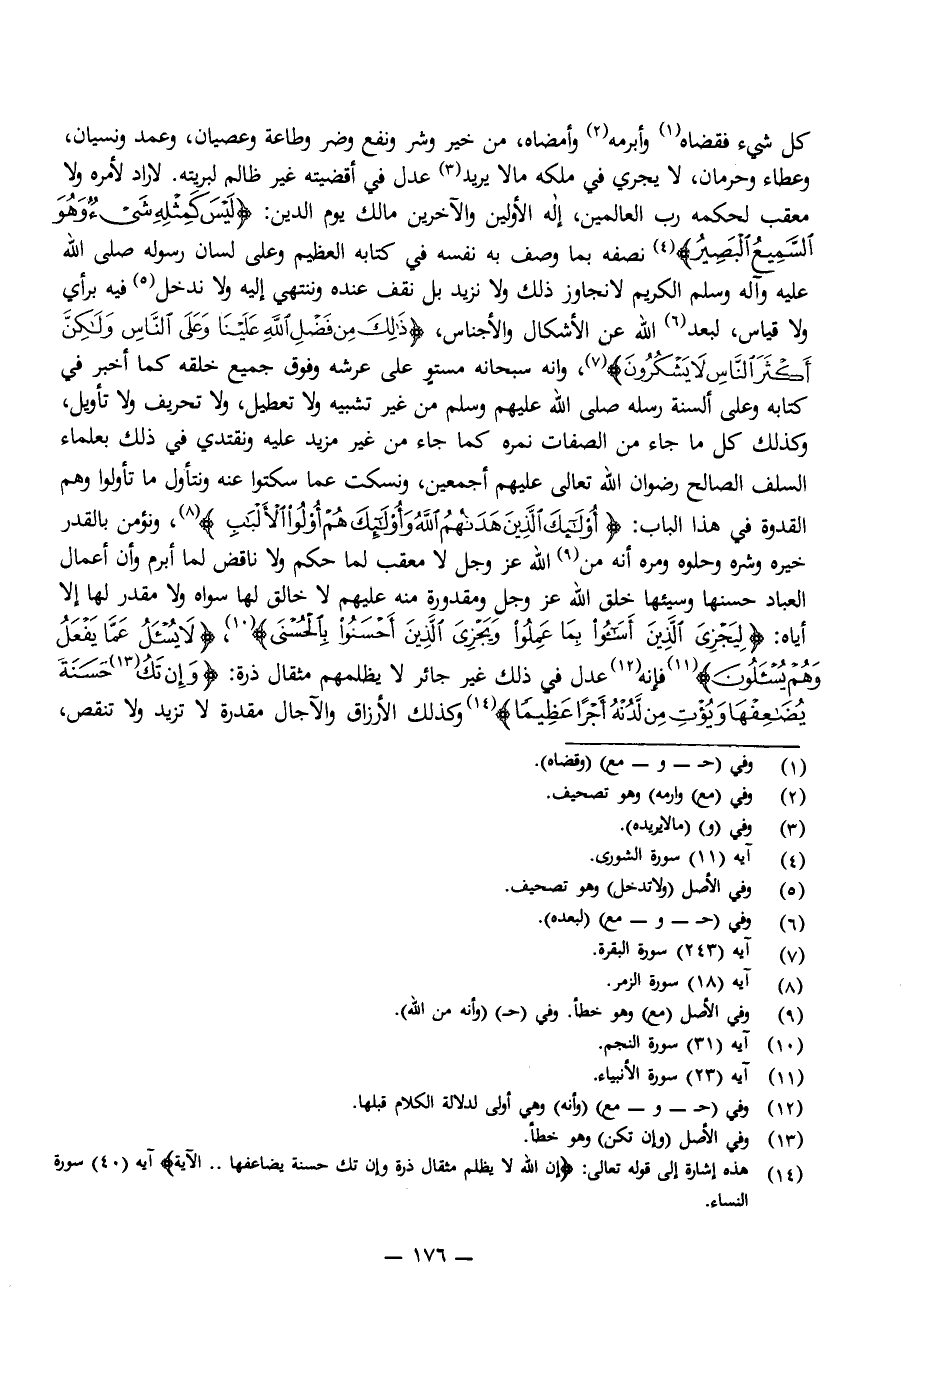 كل شيء فقضاه(١) وأبرمه(٢) وأمضاه، من خير وشر ونفع وضر وطاعة وعصيان، وعمد ونسيان،
وعطاء وحرمان، لا يجري في ملكه مالا يريد(٣) عدل في أقضيته غير ظالم لبريته. لاراد لأمره ولا
معقب لحكمه رب العالمين، إله الأولين والآخرين مالك يوم الدين: ﴿لَيْسَ كَمِثْلِهِ شَيْءٌ وَهُوَ
السَّمِيعُ الْبَصِيرُ﴾(٤) نصفه بما وصف به نفسه في كتابه العظيم وعلى لسان رسوله صلى الله
عليه وآله وسلم الكريم لانجاوز ذلك ولا نزيد بل نقف عنده وننتهي إليه ولا ندخل(٥) فيه برأي
ولا قياس، لبعد(٦) الله عن الأشكال والأجناس، ﴿ذَلِكَ مِن فَضْلِ اللَّهِ عَلَيْنَا وَعَلَى النَّاسِ وَلَكِنَّ
أَكْثَرَ النَّاسِ لَا يَشْكُرُونَ﴾(٧)، وانه سبحانه مستوٍ على عرشه وفوق جميع خلقه كما أخبر في
كتابه وعلى ألسنة رسله صلى الله عليهم وسلم من غير تشبيه ولا تعطيل، ولا تحريف ولا تأويل،
وكذلك كل ما جاء من الصفات نمره كما جاء من غير مزيد عليه ونقتدي في ذلك بعلماء
السلف الصالح رضوان الله تعالى عليهم أجمعين، ونسكت عما سكتوا عنه ونتأول ما تأولوا وهم
القدوة في هذا الباب: ﴿أُوْلَئِكَ الَّذِينَ هَدَاهُمُ اللَّهُ وَأُوْلَئِكَ هُمْ أُوْلُوا الْأَلْبَابِ﴾(٨)، ونؤمن بالقدر
خيره وشره وحلوه ومره أنه من(٩) الله عز وجل لا معقب لما حكم ولا ناقض لما أبرم وأن أعمال
العباد حسنها وسيئها خلق الله عز وجل ومقدورة منه عليهم لا خالق لها سواه ولا مقدر لها إلا
أياه: ﴿لِيَجْزِيَ الَّذِينَ أَسَاءُوا بِمَا عَمِلُوا وَيَجْزِيَ الَّذِينَ أَحْسَنُوا بِالْحُسْنَى﴾(١٠)، ﴿لَا يُسْئَلُ عَمَّا يَفْعَلُ
وَهُمْ يُسْئَلُونَ﴾(١١) فإنه(١٢) عدل في ذلك غير جائر لا يظلمهم مثقال ذرة: ﴿وَإِن تَكُ(١٣) حَسَنَةً
يُضَاعِفْهَا وَيُؤْتِ مِن لَّدُنْهُ أَجْرًا عَظِيمًا﴾(١٤) وكذلك الأرزاق والآجال مقدرة لا تزيد ولا تنقص،
(١) وفي (حـ ــ و ــ مع) (وقضاه).
(٢) وفي (مع) وارمه) وهو تصحيف.
(٣) وفي (و) (مالايريده).
(٤) آيه (١١) سورة الشورى.
(٥) وفي الأصل (ولاتدخل) وهو تصحيف.
(٦) وفي (حـ ــ و ــ مع) (لبعده).
(٧) آيه (٢٤٣) سورة البقرة.
(٨) آيه (١٨) سورة الزمر.
(٩) وفي الأصل (مع) وهو خطأ. وفي (حـ) (وأنه من الله).
(١٠) آيه (٣١) سورة النجم.
(١١) آيه (٢٣) سورة الأنبياء.
(١٢) وفي (حـ ــ و ــ مع) (وأنه) وهي أولى لدلالة الكلام قبلها.
(١٣) وفي الأصل (وإن تكن) وهو خطأ.
(١٤) هذه إشارة إلى قوله تعالى: ﴿إن الله لا يظلم مثقال ذرة وإن تك حسنة يضاعفها .. الآية﴾ آيه (٤٠) سورة
النساء.
ــ ١٧٦ ــ